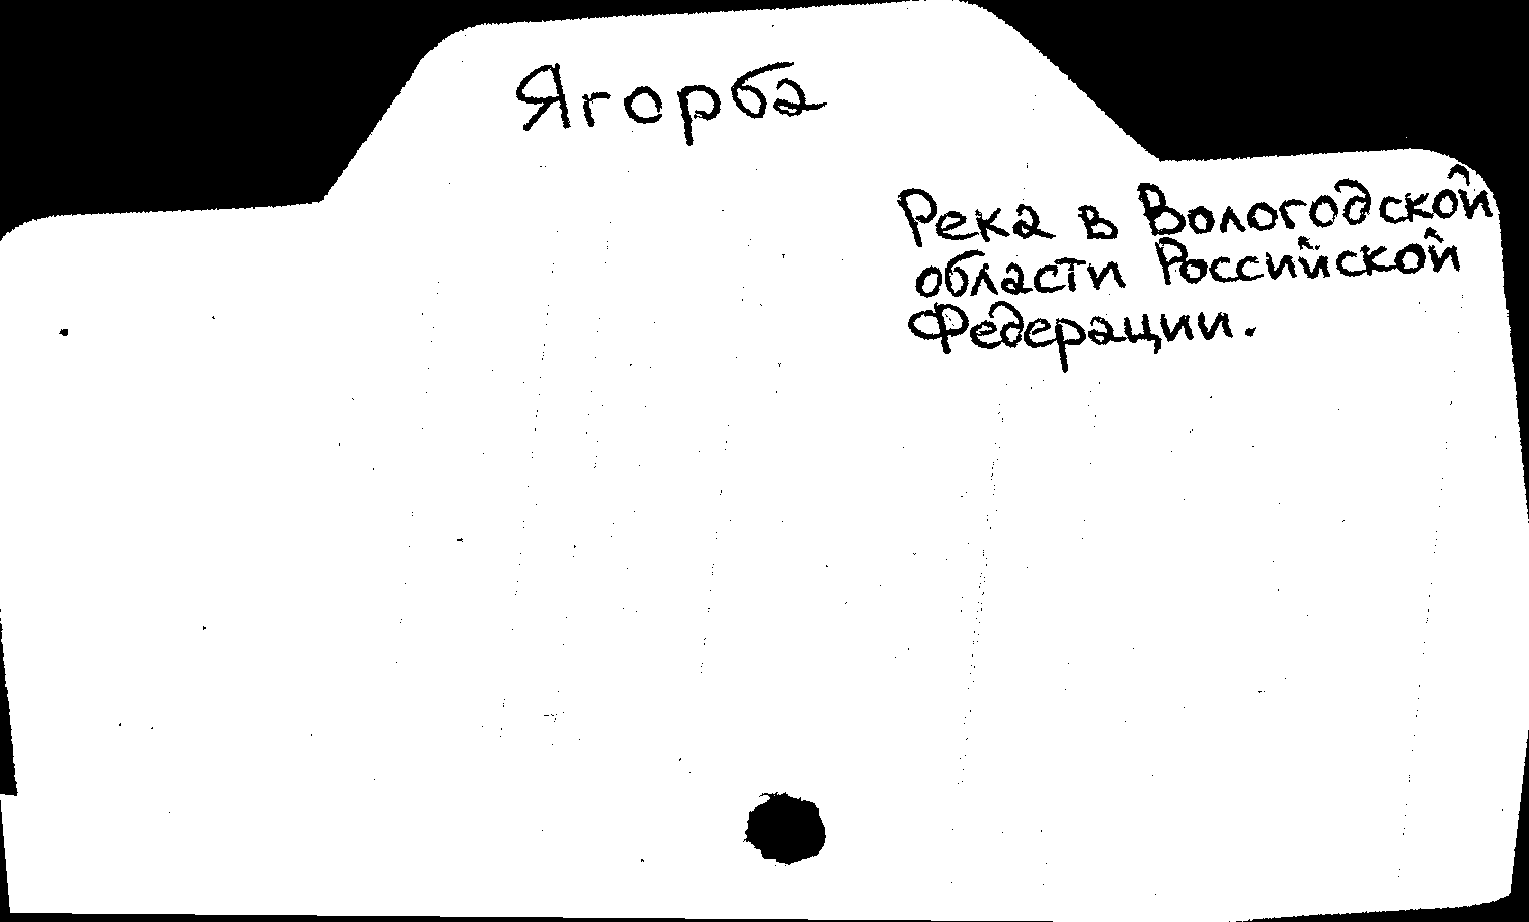 Ягорба
Река в Вологодской
области Российской
Федерации.